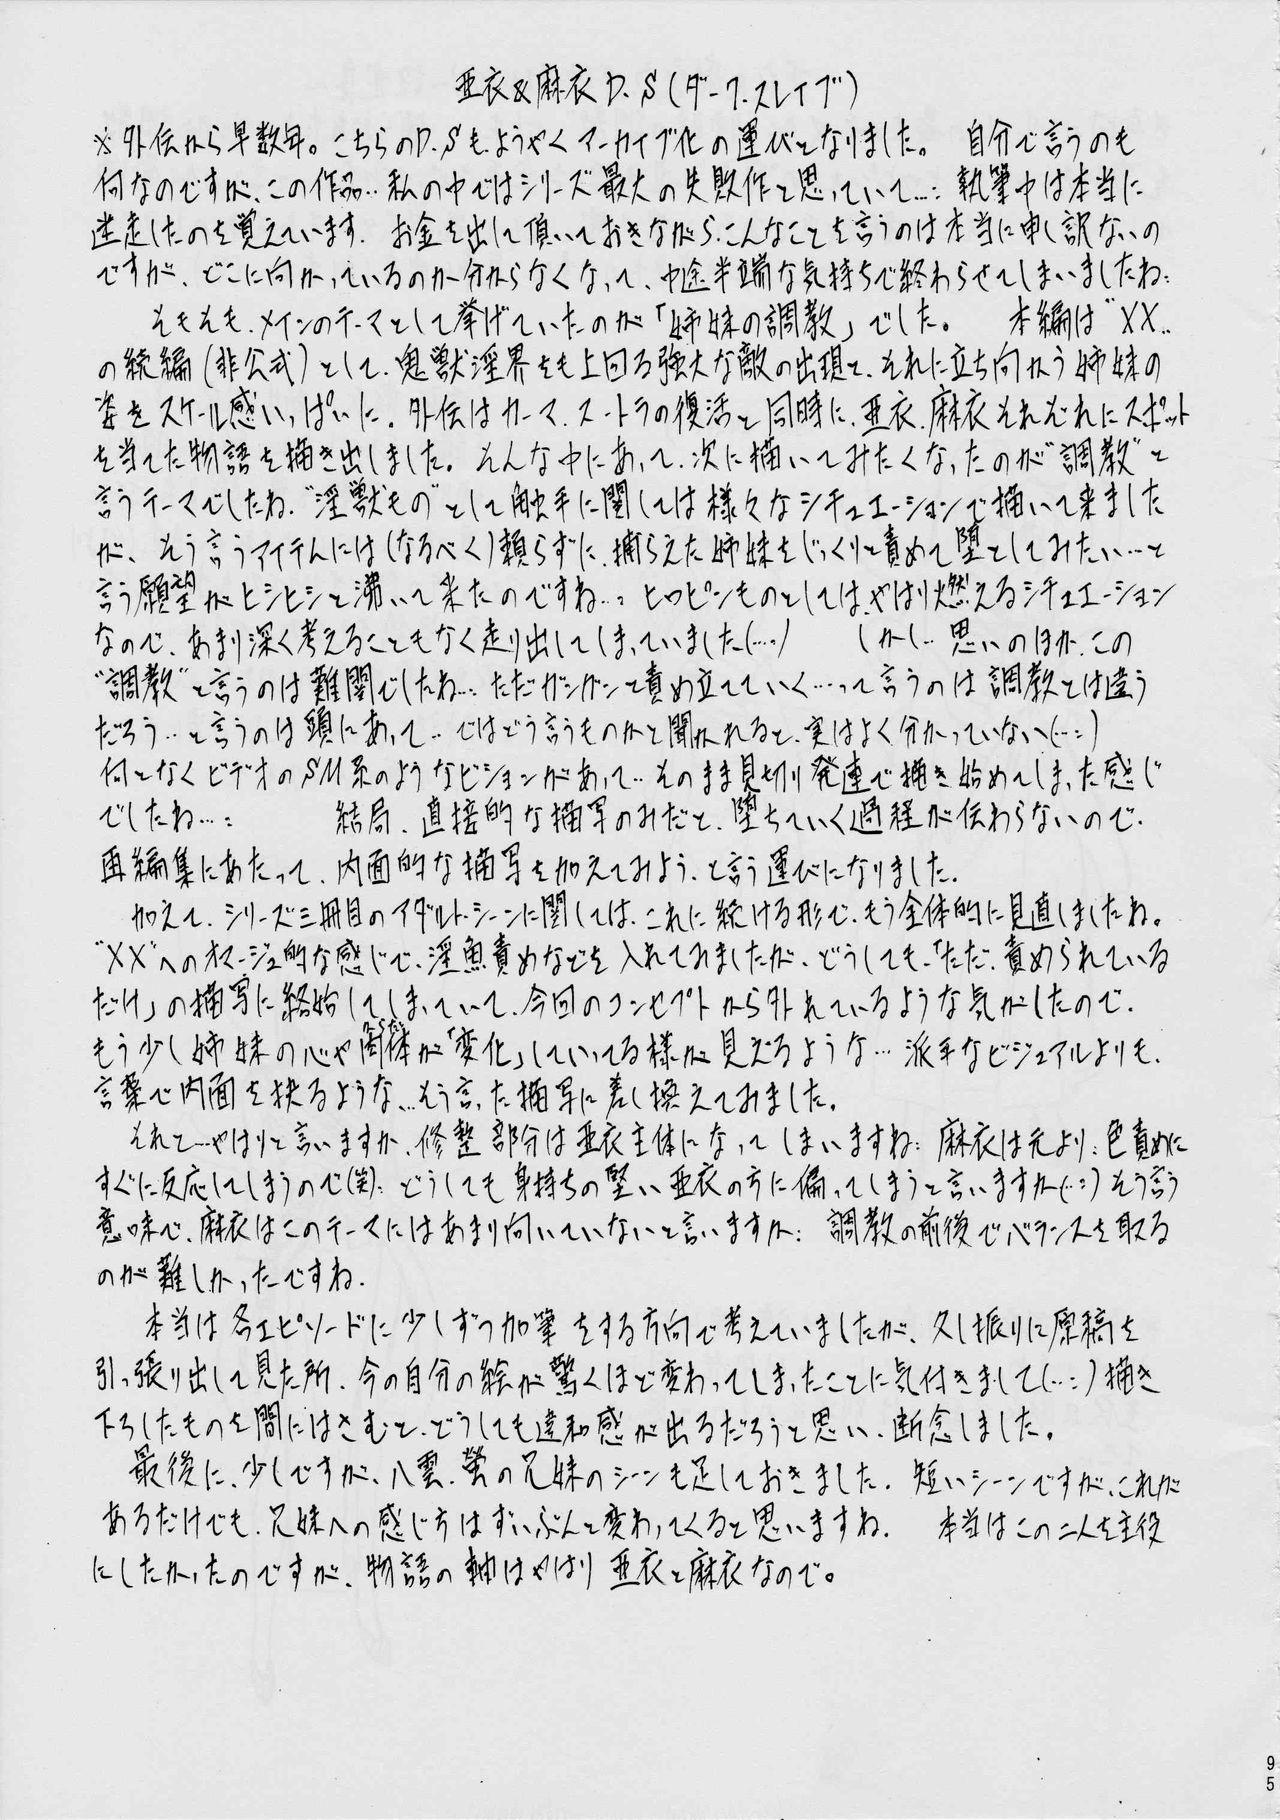 亜衣&麻衣 D.S(ダーク.スレイブ)
※外伝から早数年。こちらのD.Sも、ようやくアーカイブ化の運びとなりました。 自分で言うのも
何なのですが、この作品‥私の中ではシリーズ最大の失敗作と思っていて…:執筆中は本当に
迷走したのを覚えています. お金を出して頂いておきながら、こんなことを言うのは本当に申し訳ないの
ですが、どこに向かっているのか分からなくなって、中途半端な気持ちで終わらせてしまいましたね:
そもそも、メインのテーマとして挙げていたのが「姉妹の調教」でした。 本編は"XX"
の続編(非公式)として、鬼獣淫界をも上回る強大な敵の出現と、それに立ち向かう姉妹の
姿をスケール感いっぱいに。外伝はカーマ.スートラの復活と同時に、亜衣、麻衣それぞれにスポット
を当てた物語を描き出しました。そんな中にあって、次に描いてみたくなったのが"調教"と
言うテーマでしたね."淫獣もの"として触手に関しては様々なシチュエーションで描いて来ました
が、そう言うアイテムには(なるべく)頼らずに、捕らえた姉妹をじっくりと責めて堕としてみたい…と
言う願望がヒシヒシと沸いて来たのですね…: ヒロピンものとしては、やはり燃えるシチュエーション
なので、あまり深く考えることもなく走り出してしまっていました(…:) しかし‥思いのほか、この
"調教"と言うのは難関でしたね…:ただガンガンと責め立てていく…って言うのは調教とは違う
だろう‥と言うのは頭にあって‥ではどう言うものかと聞かれると、実はよく分かっていない(…:)
何となくビデオのSM系のようなビジョンがあって‥そのまま見切り発進で描き始めてしまった感じ
でしたね…: 結局、直接的な描写のみだと、堕ちていく過程が伝わらないので、
再編集にあたって、内面的な描写を加えてみよう、と言う運びになりました.
加えて、シリーズ三冊目のアダルト.シーンに関しては、これに続ける形で、もう全体的に見直しましたね。
"XX"へのオマージュ的な感じで、淫魚責めなどを入れてみましたが、どうしても、「ただ、責められている
だけ」の描写に終始してしまっていて、今回のコンセプトから外れているような気がしたので、
もう少し姉妹の心や肉体が「変化」していってる様が見えるような…派手なビジュアルよりも、
言葉で内面を抉るような、…そう言った描写に差し換えてみました。
それと…やはりと言いますか、修整部分は亜衣主体になってしまいますね:麻衣は元より:色責めに
すぐに反応してしまうので(笑):どうしても身持ちの堅い亜衣の方に偏ってしまうと言いますか(…:)そう言う
意味で、麻衣はこのテーマにはあまり向いていないと言いますか: 調教の前後でバランスを取る
のが難しかったですね.
本当は各エピソードに少しずつ加筆をする方向で考えていましたが、久し振りに原稿を
引っ張り出して見た所、今の自分の絵が驚くほど変わってしまったことに気付きまして(…:)描き
下ろしたものを間にはさむと、どうしても違和感が出るだろうと思い、断念しました。
最後に、少しですが、八雲.螢の兄妹のシーンも足しておきました. 短いシーンですが、これが
あるだけでも、兄妹への感じ方はずいぶんと変わってくると思いますね. 本当はこの二人を主役
にしたかったのですが、物語の軸はやはり亜衣と麻衣なので。
95